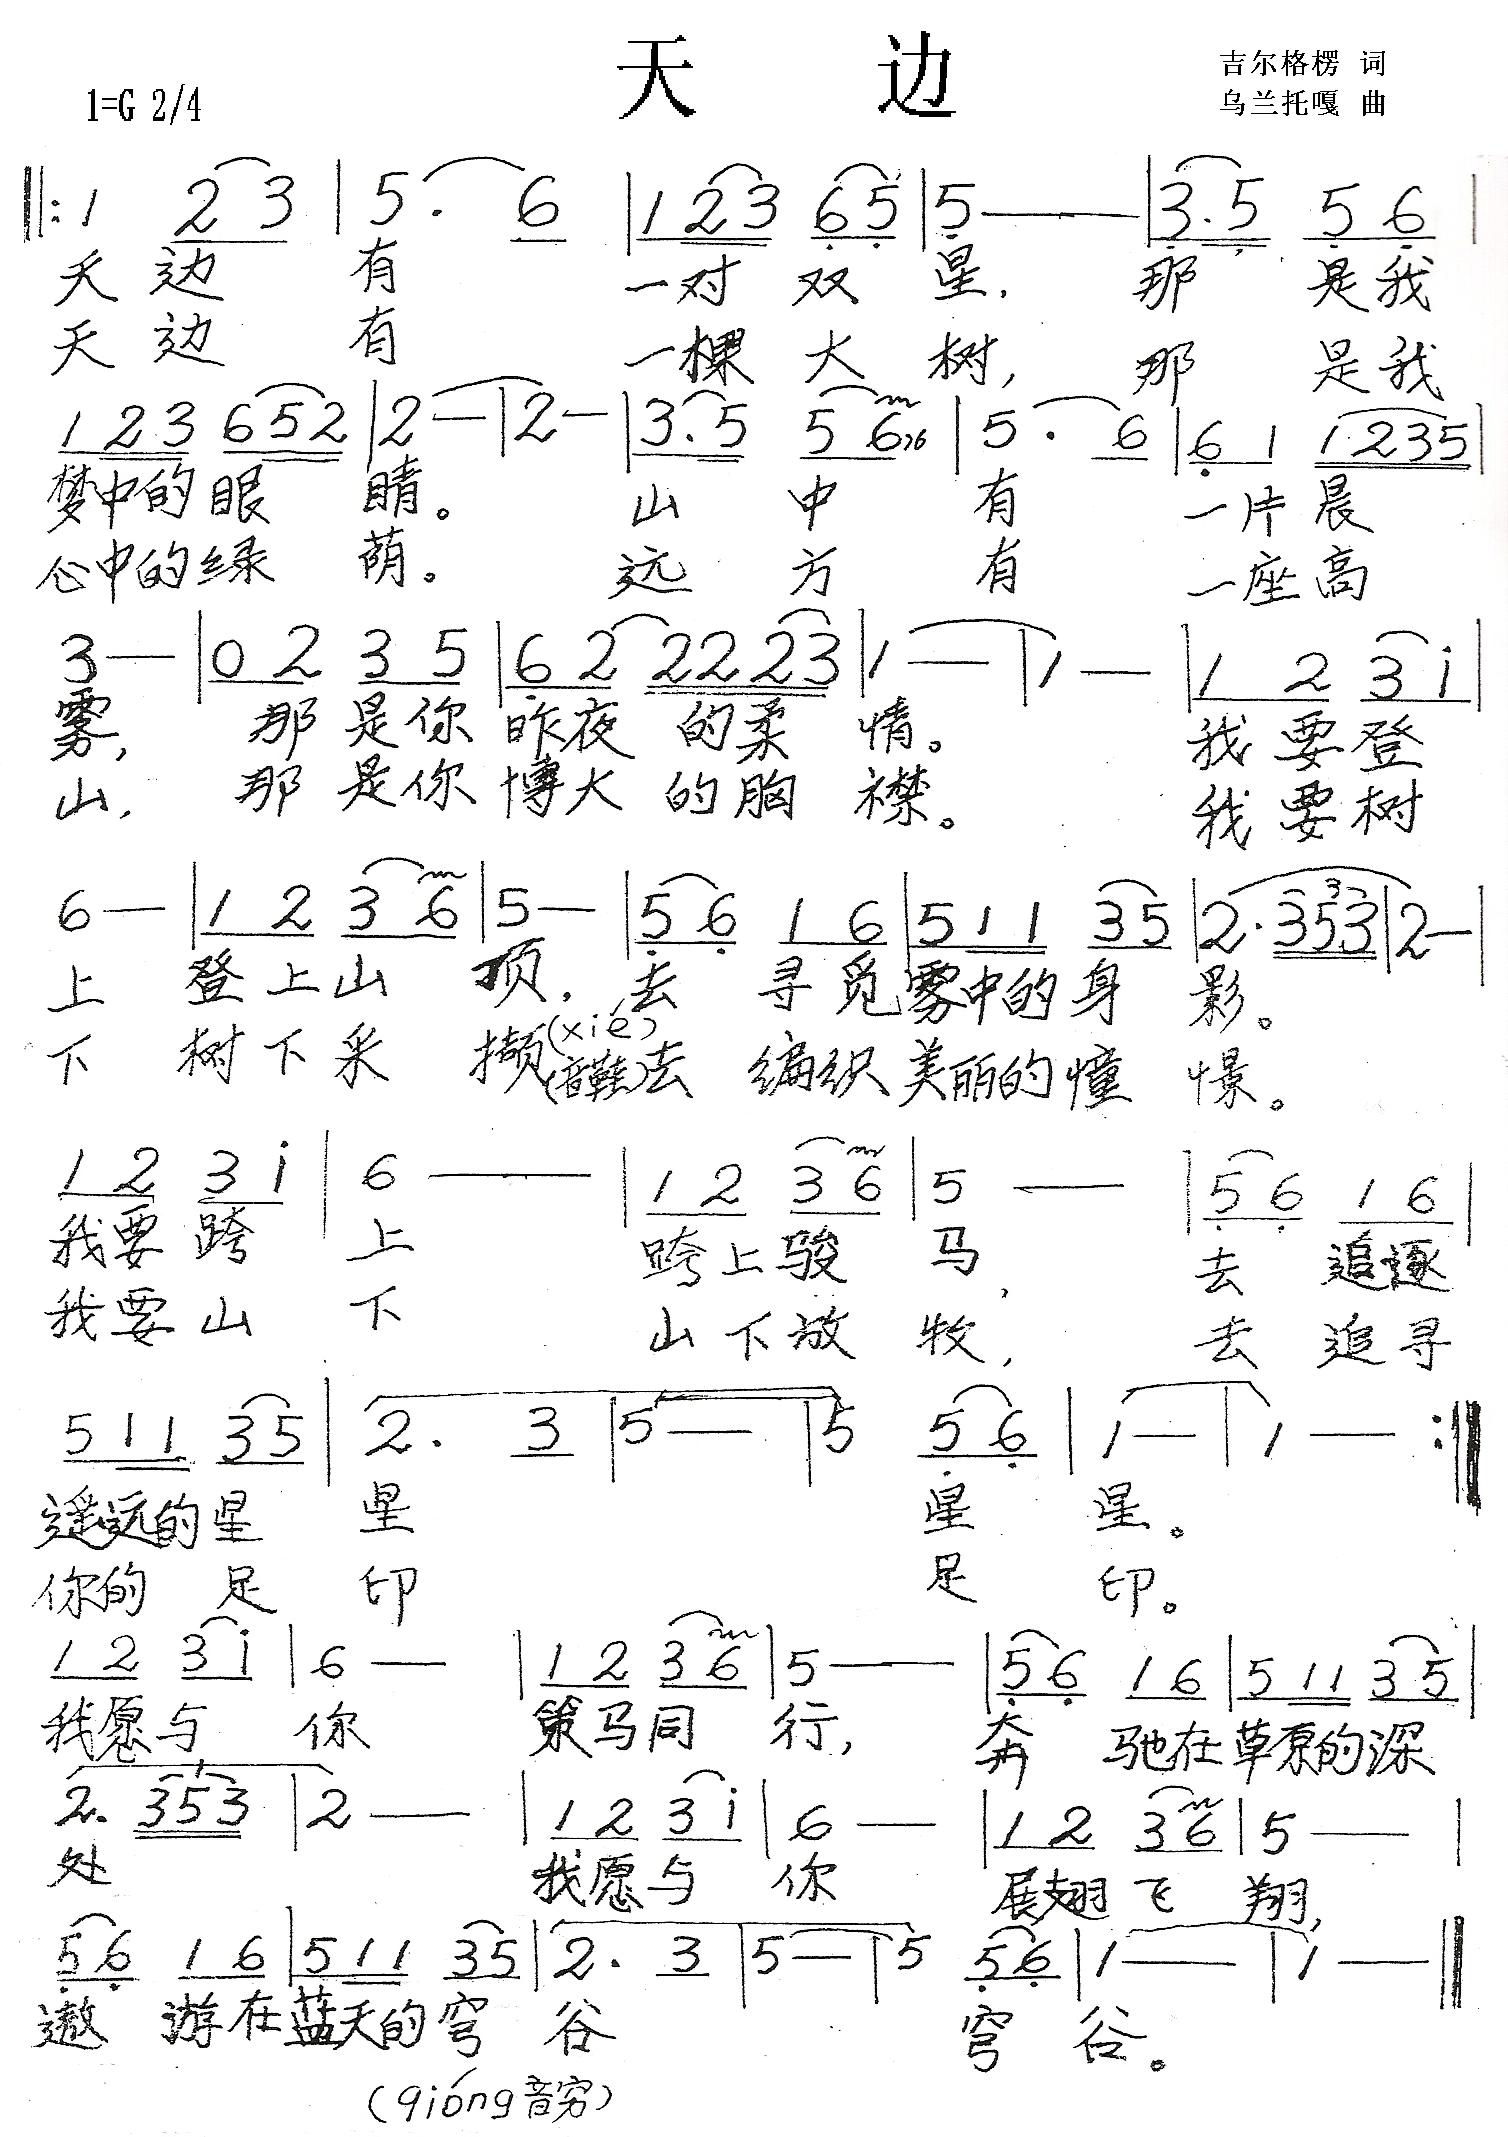 天 边
吉尔格楞 词
1=G 2/4
乌兰托嘎 曲
‖: 1 2 3 | 5 . 6 | 1 2 3 6 5 | 5 — | 3 . 5 5 6 |
天 边 有 一对 双 星, 那 是我
天 边 有 一棵 大 树, 那 是我
1 2 3 6 5 2 | 2 — | 2 — | 3 . 5 5 6 76 | 5 . 6 | 6 1 1 2 3 5 |
梦中的眼 睛。 山 中 有 一片晨
心中的绿 荫。 远 方 有 一座高
3 — | 0 2 3 5 | 6 2 2 2 2 3 | 1 — | 1 — | 1 2 3 i |
雾, 那是你昨夜 的柔 情。 我要登
山, 那是你博大 的胸 襟。 我要树
6 — | 1 2 3 6 | 5 — | 5 6 1 6 | 5 1 1 3 5 | 2 . 3 5 3 | 2 — |
上 登上山 顶, 去 寻觅雾中的身 影。
(xié)
下 树下采 撷(音鞋)去 编织美丽的憧 憬。
1 2 3 i | 6 — | 1 2 3 6 | 5 — | 5 6 1 6 |
我要跨 上 跨上骏 马, 去 追逐
我要山 下 山下放 牧, 去 追寻
5 1 1 3 5 | 2 . 3 | 5 — | 5 5 6 | 1 — | 1 — :‖
遥远的星 星 星 星。
你的 足 印 足 印。
1 2 3 i | 6 — | 1 2 3 6 | 5 — | 5 6 1 6 | 5 1 1 3 5 |
我愿与 你 策马同 行, 奔 驰在草原的深
2 . 3 5 3 | 2 — | 1 2 3 i | 6 — | 1 2 3 6 | 5 — |
处 我愿与 你 展翅飞 翔,
5 6 1 6 | 5 1 1 3 5 | 2 . 3 | 5 — | 5 5 6 | 1 — | 1 — ‖
遨 游在蓝天的穹 谷 穹 谷。
(qióng音穷)